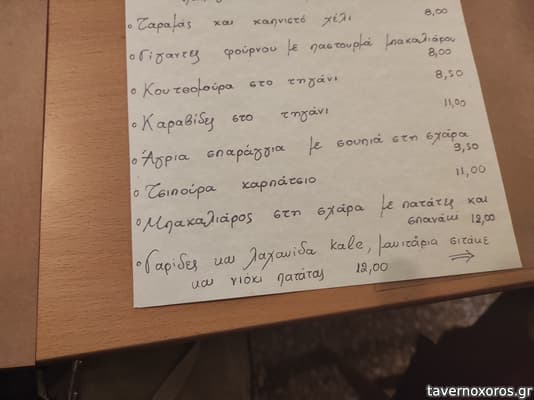 Ταραμάς και καπνιστό χέλι 8,00
Γίγαντες φούρνου με παστουρμά μπακαλιάρου
8,00
Κουτσομούρα στο τηγάνι 8,50
Καραβίδες στο τηγάνι 11,00
Άγρια σπαράγγια με σουπιά στη σχάρα
9,50
Τσιπούρα καρπάτσιο 11,00
Μπακαλιάρος στη σχάρα με πατάτες και
σπανάκι 12,00
Γαρίδες και λαχανίδα kale, μανιτάρια σιτάκε
και νιόκι πατάτας 12,00
tavernoxoros.gr